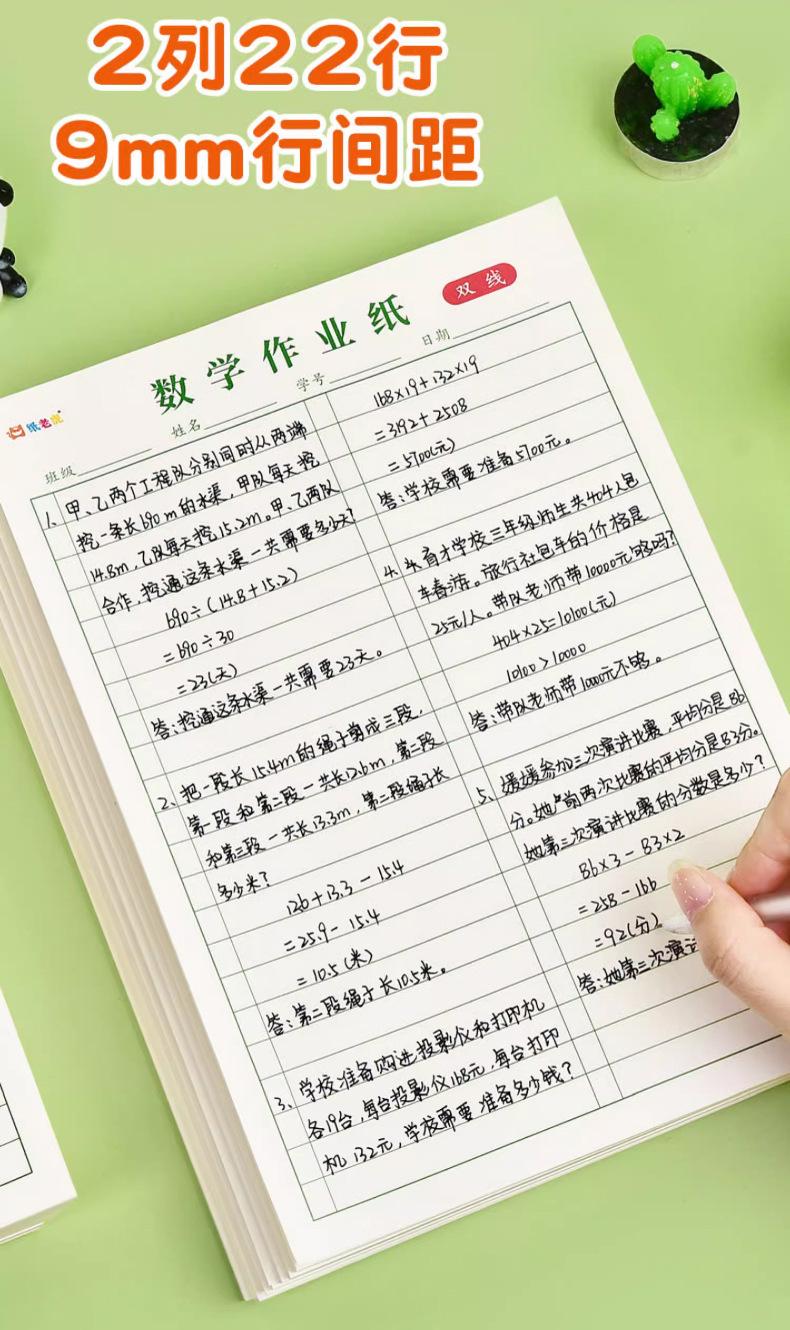 2列22行
9mm行间距
双线
数学作业纸
纸老虎
班级 姓名 学号 日期
1、甲、乙两个工程队分别同时从两端
挖一条长690m的水渠，甲队每天挖
14.8m，乙队每天挖15.2m。甲、乙两队
合作，挖通这条水渠一共需要多少天？
690÷(14.8+15.2)
=690÷30
=23(天)
答：挖通这条水渠一共需要23天。
2、把一段长15.4m的绳子剪成三段，
第一段和第二段一共长12.6m，第二段
和第三段一共长13.3m，第二段绳子长
多少米？
126+13.3-15.4
=25.9-15.4
=10.5(米)
答：第二段绳子长10.5米。
3、学校准备购进投影仪和打印机
各19台，每台投影仪168元，每台打印
机132元，学校需要准备多少钱？
168×19+132×19
=3192+2508
=5700(元)
答：学校需要准备5700元。
4、4.育才学校三年级师生共404人包
车春游。旅行社包车的价格是
25元/人。带队老师带10000元够吗？
404×25=10100(元)
10100>10000
答：带队老师带1000元不够。
5、媛媛参加三次演讲比赛，平均分是86
分。她前两次比赛的平均分是83分。
她第三次演讲比赛的分数是多少？
86×3-83×2
=258-166
=92(分)
答：她第三次演